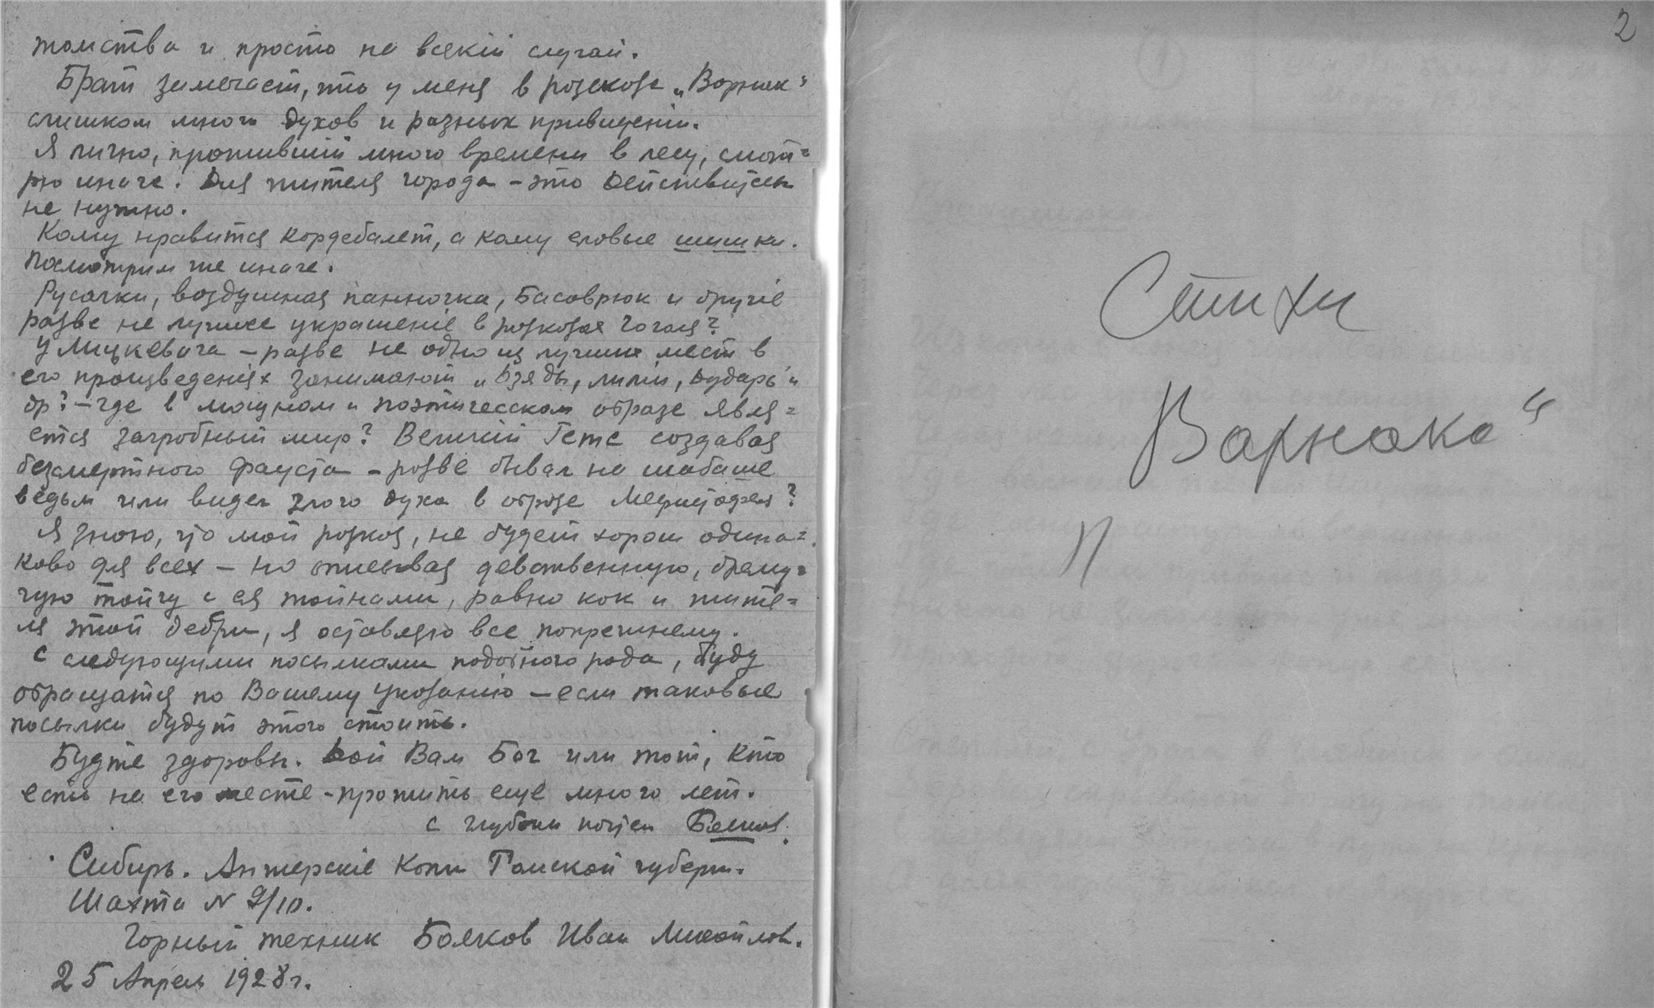 томства и просто на всякiй случай.
Брат замечает, что у меня в розсказе „Ворнак“
слишком много духов и разных привиденiи.
Я лично, проживший много времени в лесу, смот=
рю иначе. Для жителя города – это действительн
не нужно.
Кому нравится кордебалет, а кому еловые шишки.
Посмотрим же иначе.
Русалки, воздушная панночка, Басаврюк и другiе
разве не лучшее украшенiе в розказах Гоголя?
У Мицкевича – разве не одно из лучших мест в
его произведенiях занимают „Дзяды, лилiи, дударь“ и
др? – где в мощном и поэтическом образе явля=
ется загробный мир? Великiй Гете создавая
безсмертного Фауста – розве бывал на шабаше
ведьм или видел злого духа в образе Мефистофеля?
Я знаю, что мой розказ, не будет хорош одина=
ково для всех – но описывая девственную, дрему=
чую тайгу с ея тайнами, равно как и жите=
ля этой дебри, я оставляю все попрежнему.
С следующими посылками подобного рода, буду
обращатся по Вашему указанiю – если таковые
посылки будут этого стоить.
Будте здоровы. Дай Вам Бог или тот, кто
есть на его месте – прожить еще много лет.
с глубоки почтен
Сибирь. Анжерскiе Копи Томской губерн.
Шахта N 9/10.
Горный техник Бояков Иван Михайлов.
25 Апрель 1928 г.
2
Стихи
Варнака“